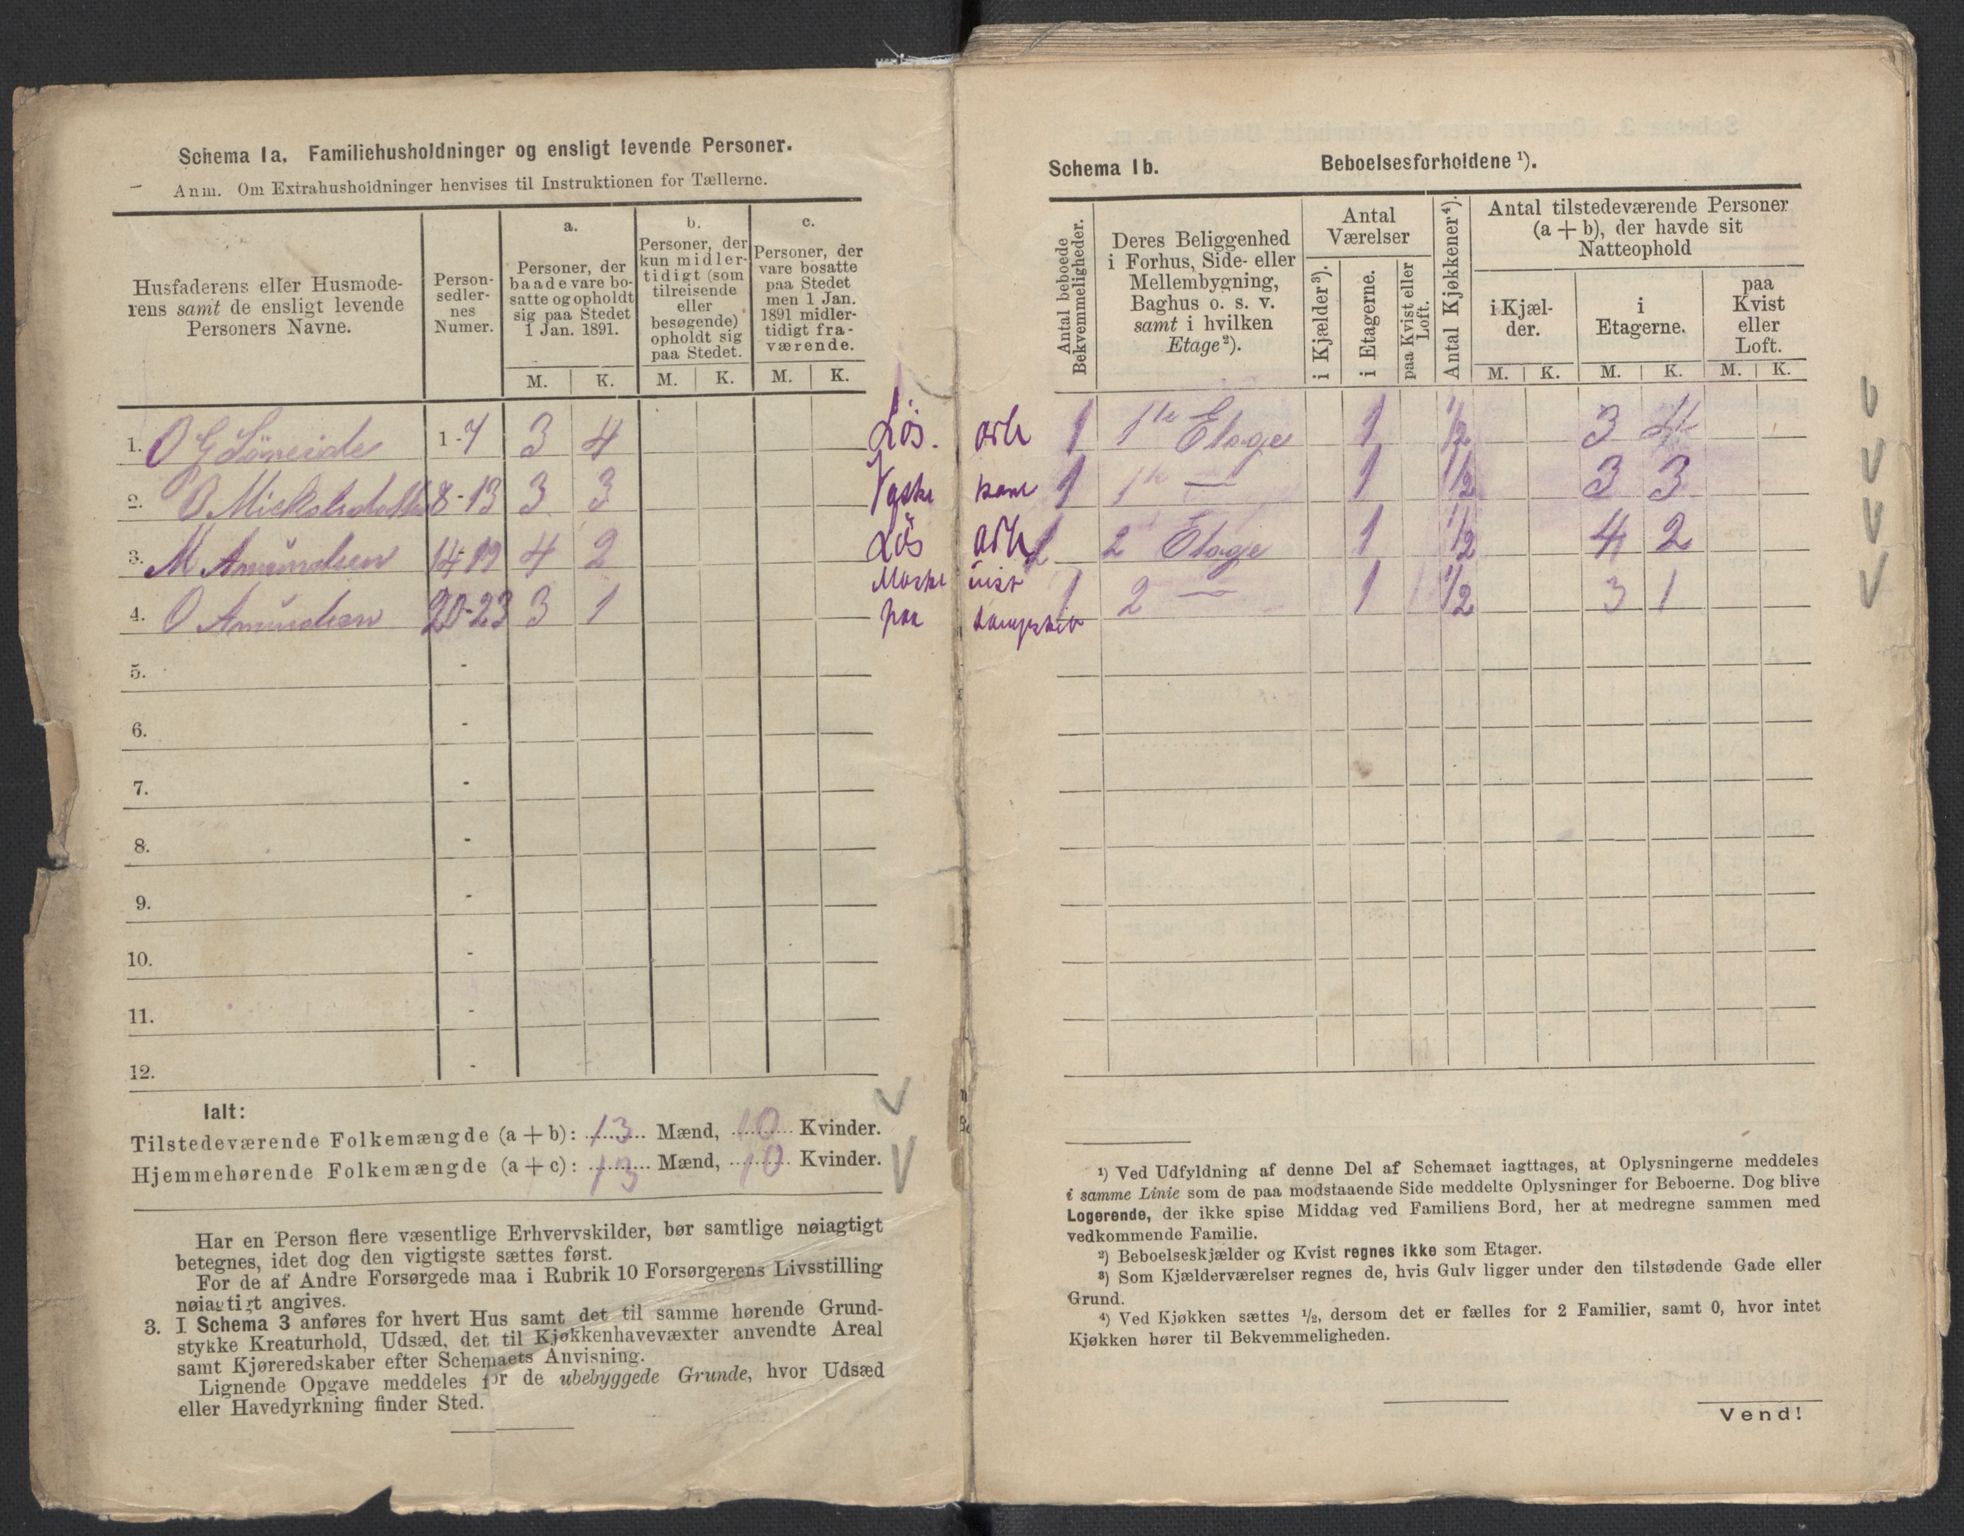 Schema 1a. Familiehusholdninger og ensligt levende Personer.
Anm. Om Extrahusholdninger henvises til Instruktionen for Tællerne.
Husfaderens eller Husmode-
rens samt de ensligt levende
Personers Navne.
Person-
sedler-
nes
Numer.
a.
Personer, der
baade vare bo-
satte og opholdt
sig paa Stedet
1 Jan. 1891.
b.
Personer, der
kun midler-
tidigt (som
tilreisende
eller
besøgende)
opholdt sig
paa Stedet.
c.
Personer, der
vare bosatte
paa Stedet
men 1 Jan.
1891 midler-
tidigt fra-
værende.
M. K. M. K. M. K.
1. O G 1-7 3 4 Løs.
2. O 8-13 3 3 Vaske
3. M Amundsen 14-19 4 2 Løs
4. O Amundsen 20-23 3 1 paa
5. -
6. -
7. -
8. -
9. -
10. -
11. -
12. -
Ialt:
Tilstedeværende Folkemængde (a + b): 13 Mænd, 10 Kvinder.
Hjemmehørende Folkemængde (a + c): 13 Mænd, 10 Kvinder.
Har en Person flere væsentlige Erhvervskilder, bør samtlige nøiagtigt
betegnes, idet dog den vigtigste sættes først.
For de af Andre Forsørgede maa i Rubrik 10 Forsørgerens Livsstilling
nøiagtigt angives.
3. I Schema 3 anføres for hvert Hus samt det til samme hørende Grund-
stykke Kreaturhold, Udsæd, det til Kjøkkenhavevæxter anvendte Areal
samt Kjøreredskaber efter Schemaets Anvisning.
Lignende Opgave meddeles for de ubebyggede Grunde, hvor Udsæd
eller Havedyrkning finder Sted.
Schema 1b. Beboelsesforholdene ¹).
Antal beboede
Bekvemmeligheder.
Deres Beliggenhed
i Forhus, Side- eller
Mellembygning,
Baghus o. s. v.
samt i hvilken
Etage²).
Antal
Værelser
i Kjælder³).
i Etagerne.
paa Kvist eller
Loft.
Antal Kjøkkener⁴).
Antal tilstedeværende Personer
(a + b), der havde sit
Natteophold
i Kjæl-
der.
i
Etagerne.
paa
Kvist
eller
Loft.
M. K. M. K. M. K.
arb 1 1te Etage 1 1/2 3 4
kone 1 1te — 1 1/2 3 3
arb 1 2 Etage 1 1/2 4 2
1 2 — 1 1/2 3 1
¹) Ved Udfyldning af denne Del af Schemaet iagttages, at Oplysningerne meddeles
i samme Linie som de paa modstaaende Side meddelte Oplysninger for Beboerne. Dog blive
Logerende, der ikke spise Middag ved Familiens Bord, her at medregne sammen med
vedkommende Familie.
²) Beboelseskjælder og Kvist regnes ikke som Etager.
³) Som Kjælderværelser regnes de, hvis Gulv ligger under den tilstødende Gade eller
Grund.
⁴) Ved Kjøkken sættes ½, dersom det er fælles for 2 Familier, samt 0, hvor intet
Kjøkken hører til Bekvemmeligheden.
Vend!